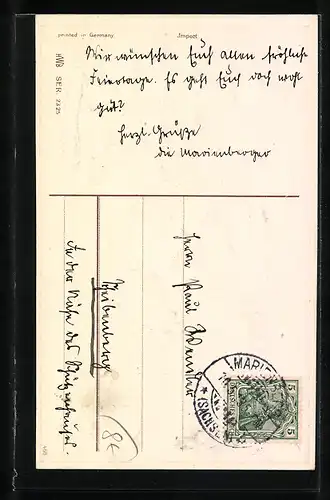 printed in Germany
Import
HWB SER. 2325
Wir wünschen Euch allen fröhliche
Feiertage. Es geht Euch doch wohl
gut?
Herzl. Grüße
die Marienberger
Herrn Paul
Scheibenberg
In der Nähe des Schützenhauses.
MARIENB
(SACHSEN)
5 5
8€